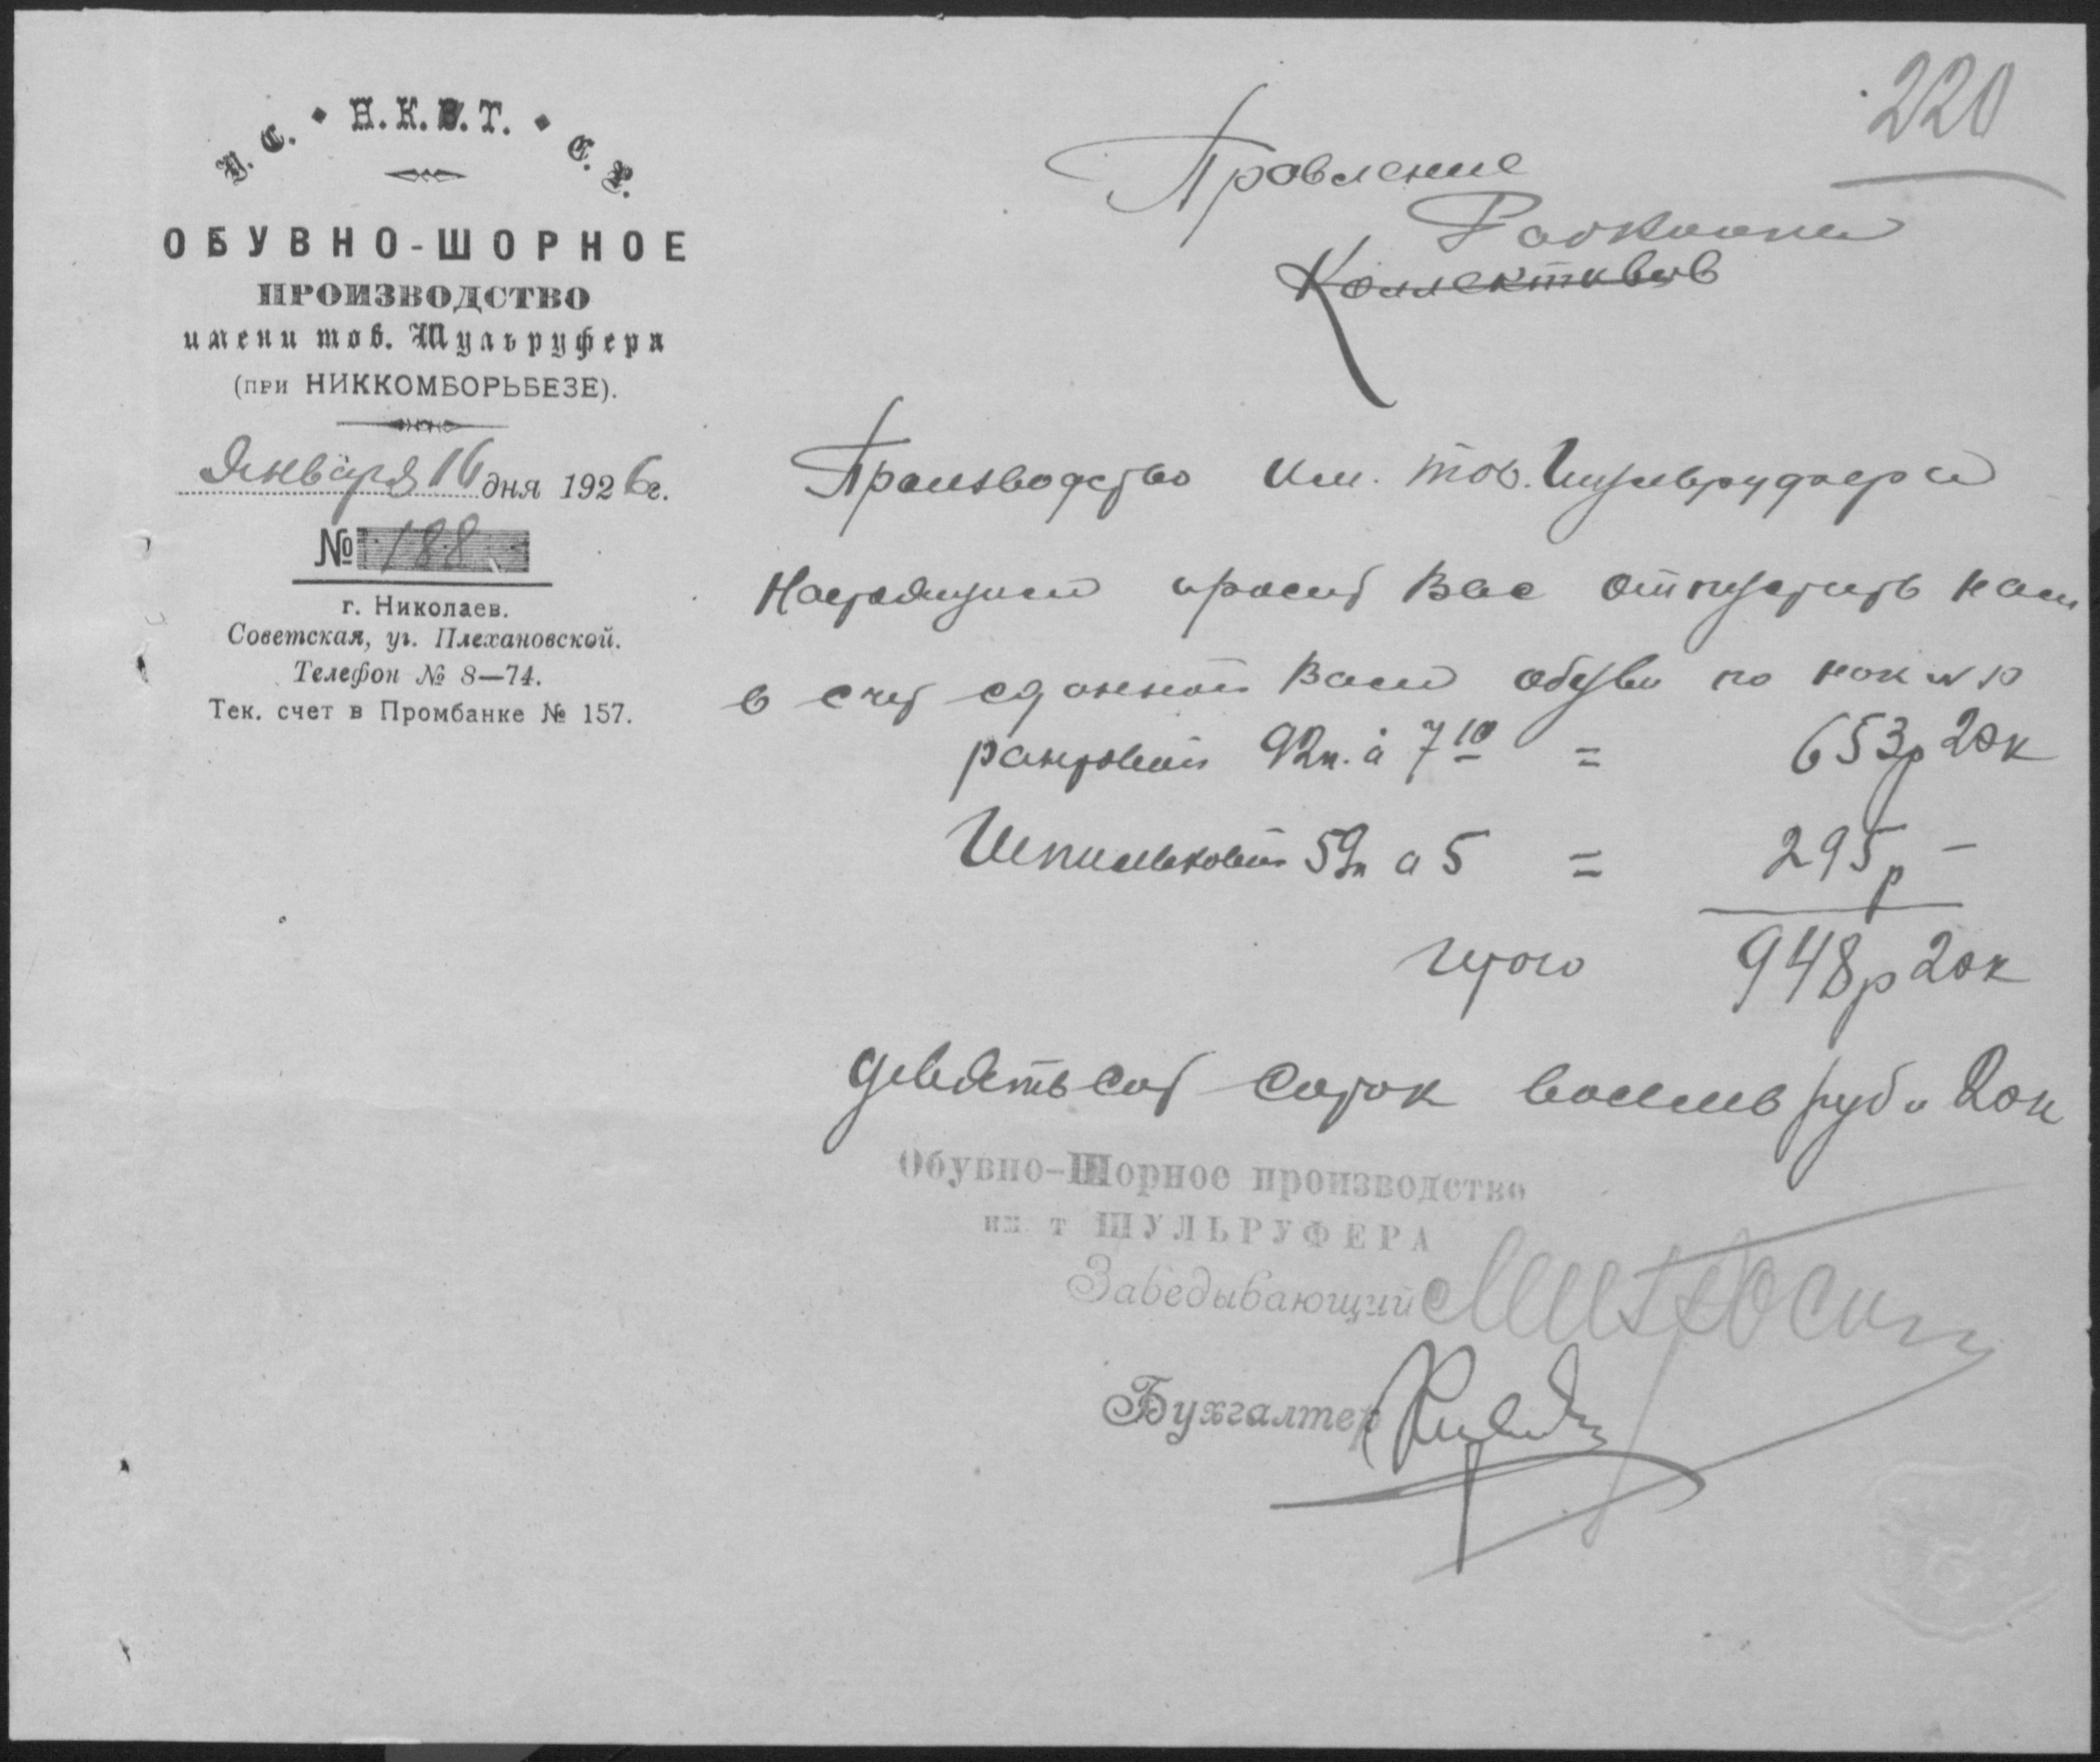 220
У. С. • Н.К.В.Т. • С. Р.
ОБУВНО-ШОРНОЕ
ПРОИЗВОДСТВО
имени тов. Шульруфера
(при НИККОМБОРЬБЕЗЕ).
Января 16 дня 1926г.
№ 188
г. Николаев.
Советская, уг. Плехановской.
Телефон № 8—74.
Тек. счет в Промбанке № 157.
Правление
Рабкопа
Коллективов
Производство им. тов. Шульруфера
Настоящим просит Вас отпустить нам
в счет сданной Вам обуви по нак № 10
рантовой 92п. à 7 10 = 653р 20к
Шпильковой 59п а 5 = 295р —
Итого 948р 20к
девятьсот сорок восемь руб и 20к
Обувно-Шорное производство
им. т ШУЛЬРУФЕРА
Заведывающий
Бухгалтер